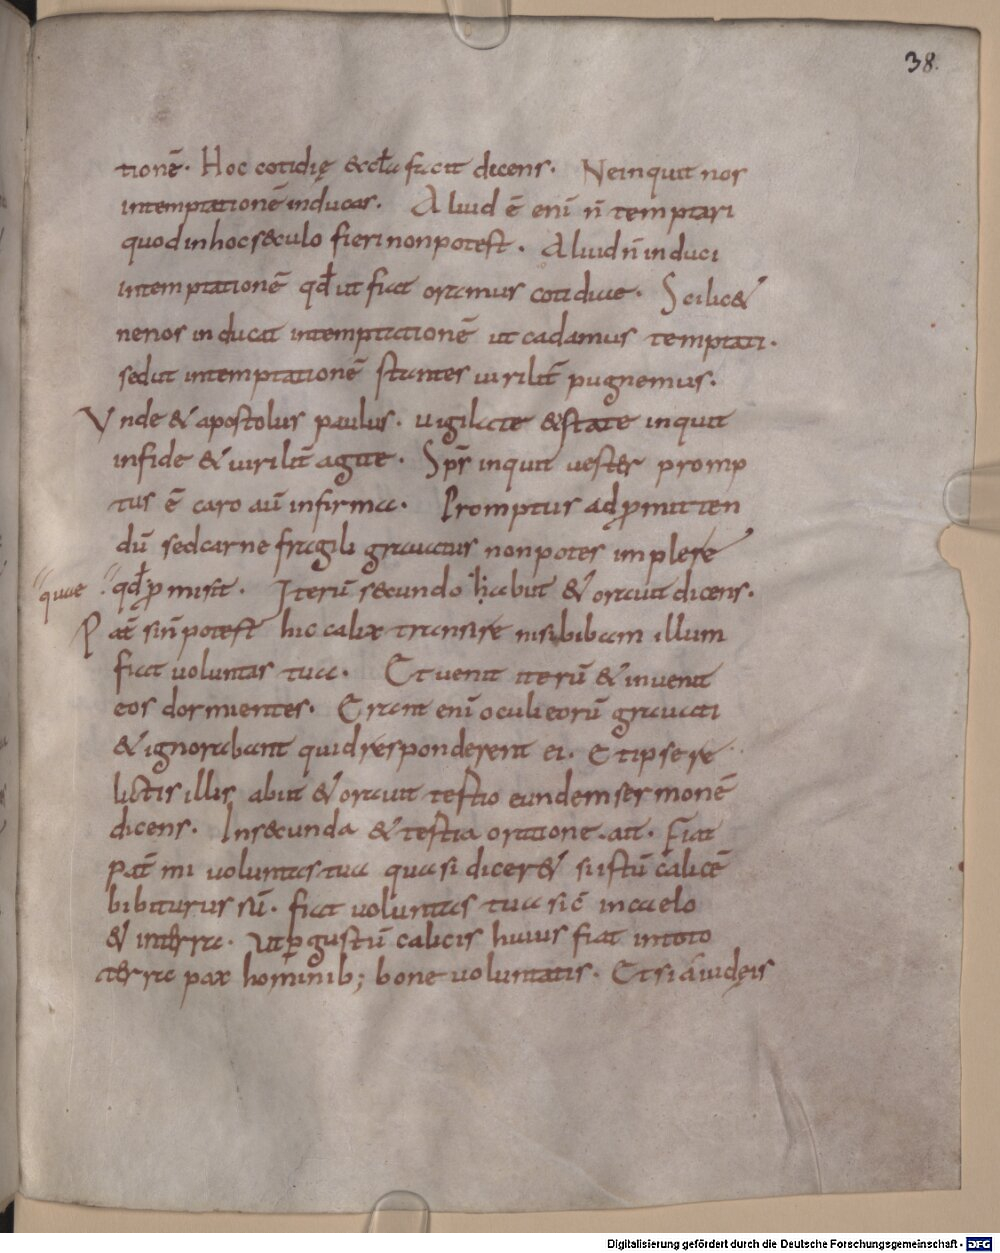 38.
tionē. Hoc cotidię &eccła facit dicens. Neinquit nos
intemptationē inducas. Aliud ē enī n̄ temptari
quod inhoc sęculo fieri non potest. Aliud n̄ induci
intemptationē qđ ut fiat oramus cotidiae. Scilic&
nenos inducat intemptationē ut cadamus temptati.
sed ut intemptationē stantes uirilit̄ pugnemus.
Vnde & apostolus paulus. uigilate &state inquit
infide & uirilit̄ agite. Sps̄ inquit uester promp
tus ē caro aut̄ infirma. Promptus ad ꝓmitten
dū sed carne fragili grauatus non potes implere
quae qđ ꝓmisit. Iterū secundo habiit & orauit dicens.
Pat̄ si n̄ potest hic calix transire nisi bibam illum
fiat uoluntas tua. Et uenit iterū & inuenit
eos dormientes. Erant enī oculi eorū grauati
& ignorabant quid responderent ei. Et ipse re
lictis illis abiit & orauit tertio eundem sermonē
dicens. Insecunda & tertia oratione. ait. Fiat
pat̄ mi uoluntas tua quasi dicer& si istū calicē
bibiturus sū. fiat uoluntas tua sic̄ in caelo
& interra. Ut ꝑ gustū calicis huius fiat intoto
terra pax hominib; bone uoluntatis. Et si
Digitalisierung gefördert durch die Deutsche Forschungsgemeinschaft - DFG